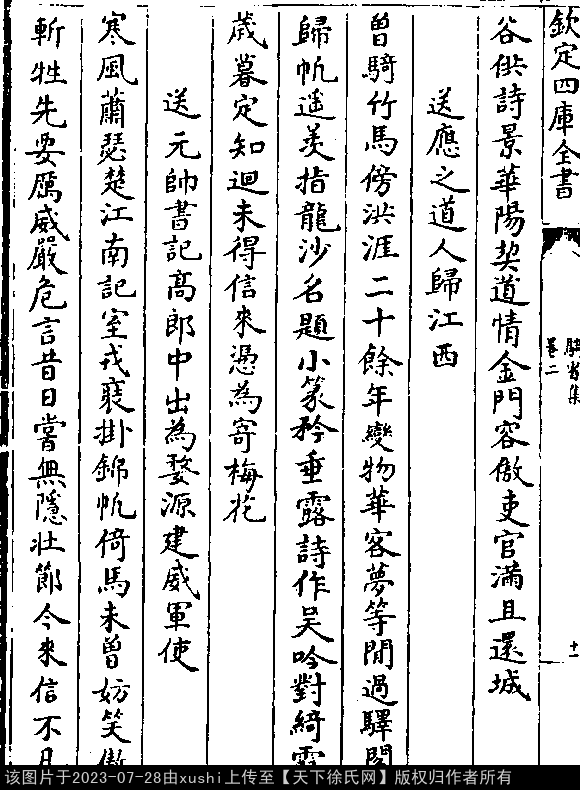 欽定四庫全書
騎省集
卷二
十一
谷供詩景華陽契道情金門容傲吏官滿且還城
送應之道人歸江西
曾騎竹馬傍洪涯二十餘年變物華客夢等閒過驛閣
歸帆遥羡指龍沙名題小篆矜垂露詩作吴吟對綺霞
歳暮定知迴未得信來憑為寄梅花
送元帥書記高郎中出為婺源建威軍使
寒風蕭瑟楚江南記室戎裝掛錦帆倚馬未曾妨笑傲
斬牲先要厲威嚴危言昔日嘗無隱壯節今來信不凡
该图片于2023-07-28由xushi上传至【天下徐氏网】版权归作者所有